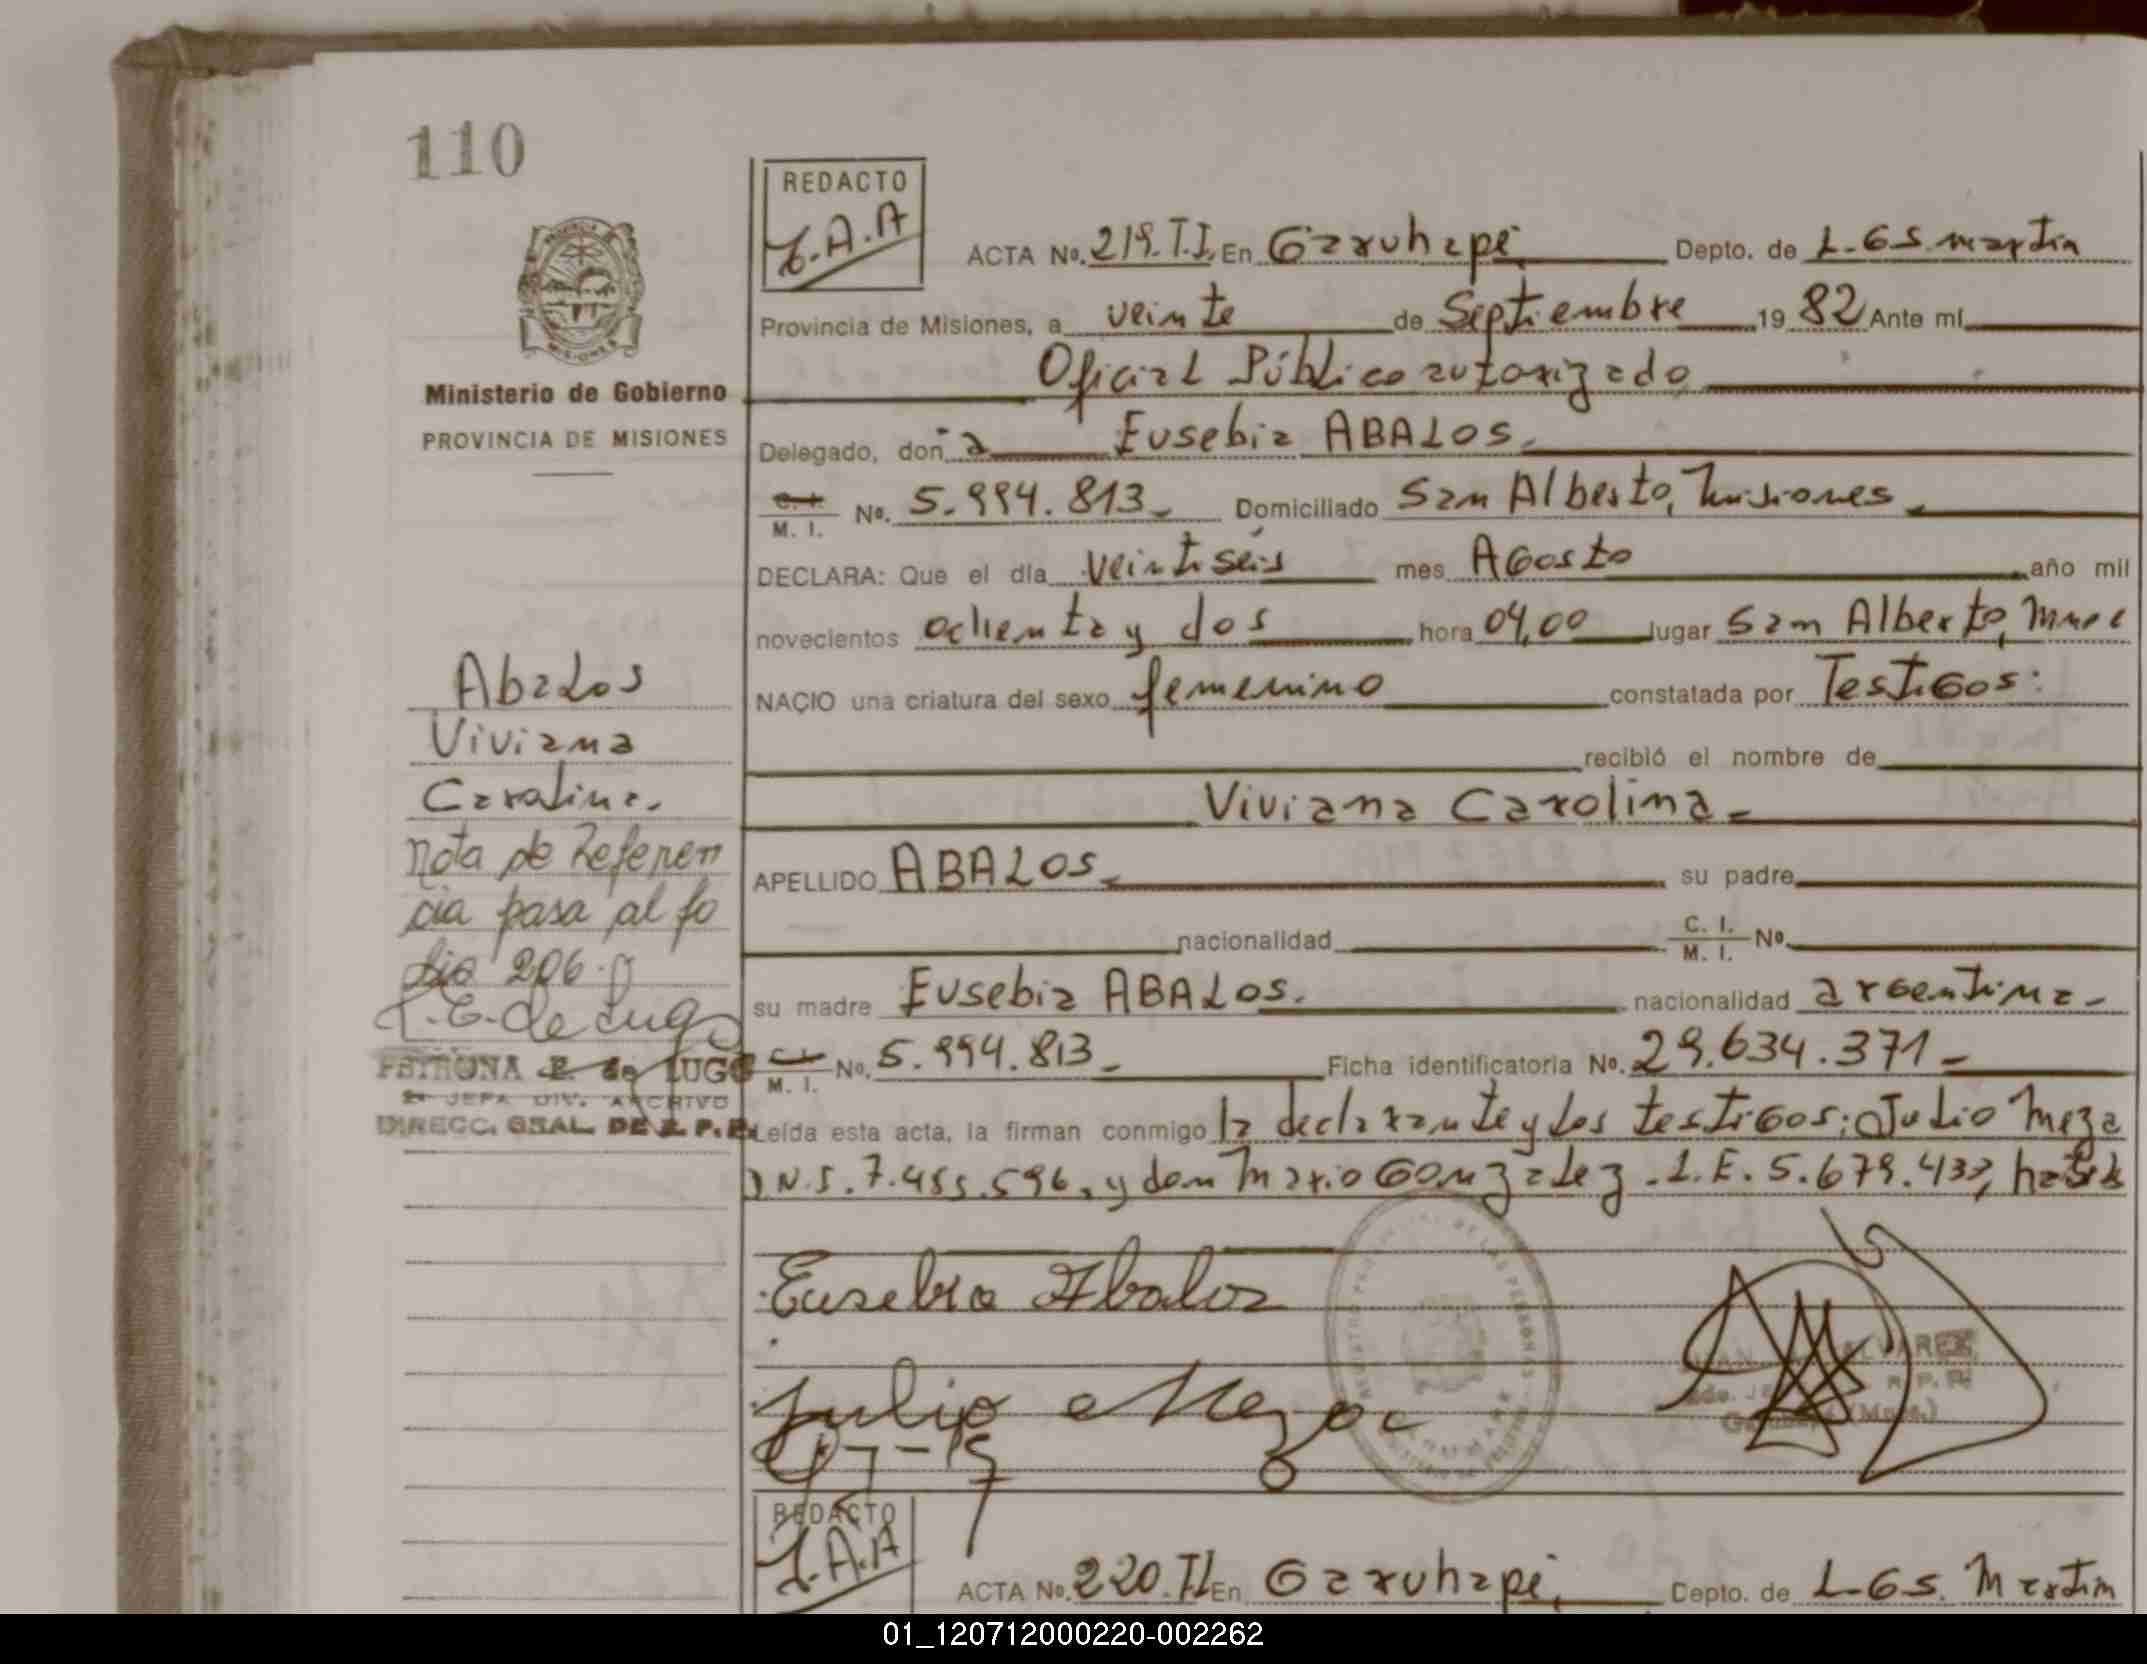 110
REDACTO
J.A.A
ACTA No. 219.T.I. En Garuhapé Depto. de L-GS. martin
Provincia de Misiones, a veinte de Septiembre 19 82 Ante mí
Oficial Público autorizado
MISIONES
Ministerio de Gobierno
PROVINCIA DE MISIONES
Delegado, don a Eusebia ABALOS.
M. I. No. 5.994.813 Domiciliado San Alberto, Misiones
DECLARA: Que el día veintiséis mes Agosto año mil
novecientos ochenta y dos hora 04,00 lugar San Alberto, Mnes
NACIO una criatura del sexo femenino constatada por Testigos:
recibió el nombre de
Viviana Carolina.-
APELLIDO ABALOS su padre
nacionalidad C. I. M. I. No
su madre Eusebia ABALOS. nacionalidad argentina-
C. I. M. I. No. 5.994.813 Ficha identificatoria No. 29.634.371-
Leída esta acta, la firman conmigo la declarante y los testigos: Julio Meza
D.N.I. 7.455.596, y don Mario Gonzalez - L.E. 5.679.433,
Abalos
Viviana
Carolina.
Nota de Referen
cia pasa al fo
lio 206.
P. E. de Lugo
PETRONA E. de LUGO
JEFA DIV. ARCHIVO
DIRECC. GRAL. DE R. P. P.
Eusebia Abalos
Julio Meza
REDACTO
J.A.A
ACTA No. 220.T.I En Garuhapé, Depto. de L-GS. Martin
01_120712000220-002262